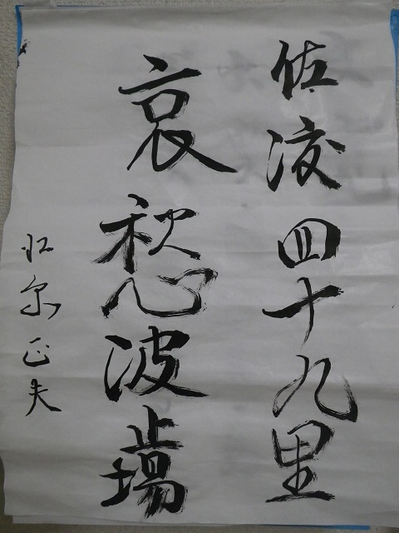 佐渡四十九里
哀愁波止場
正夫